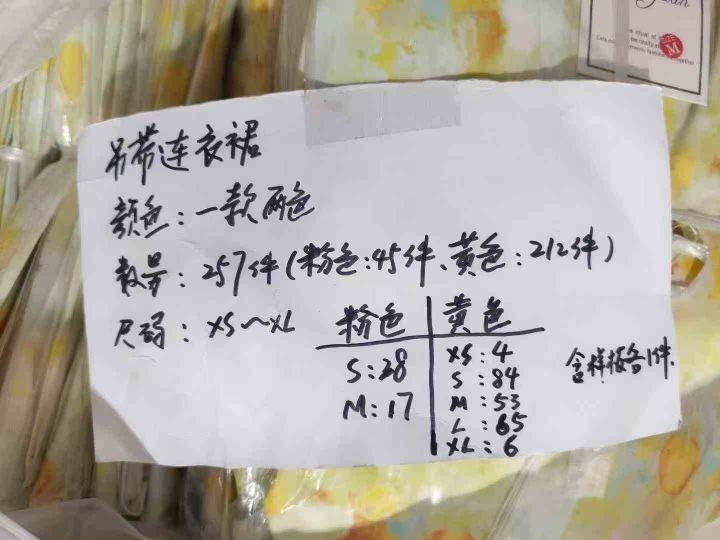 吊带连衣裙
颜色：一款两色
数量：257件(粉色:45件、黄色:212件)
尺码：XS~XL
粉色
S:28
M:17
黄色
XS:4
S:84
M:53
L:65
XL:6
含样板各1件.
M